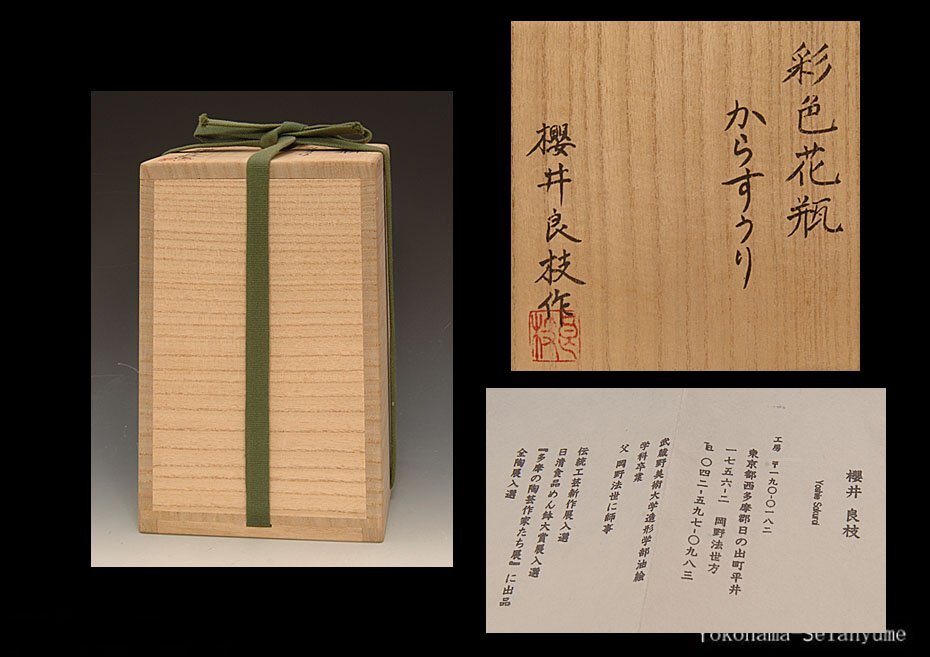 彩色花瓶
からすうり
櫻井良枝作
良枝
櫻井 良枝
Yoshie Sakurai
工房 〒一九〇-〇一八二
東京都西多摩郡日の出町平井
一七五六-二 岡野法世方
℡ 〇四二-五九七-〇九八三
武蔵野美術大学造形学部油絵
学科卒業
父 岡野法世に師事
伝統工芸新作展入選
日清食品めん鉢大賞展入選
『多摩の陶芸作家たち展』に出品
全陶展入選
Yokohama Seianyume